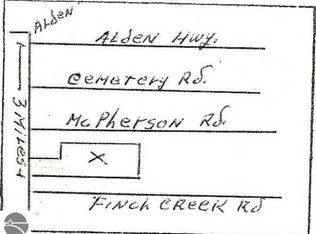 Alden
Alden Hwy.
Cemetery Rd.
McPherson Rd.
3 Miles+
X
Finch Creek Rd